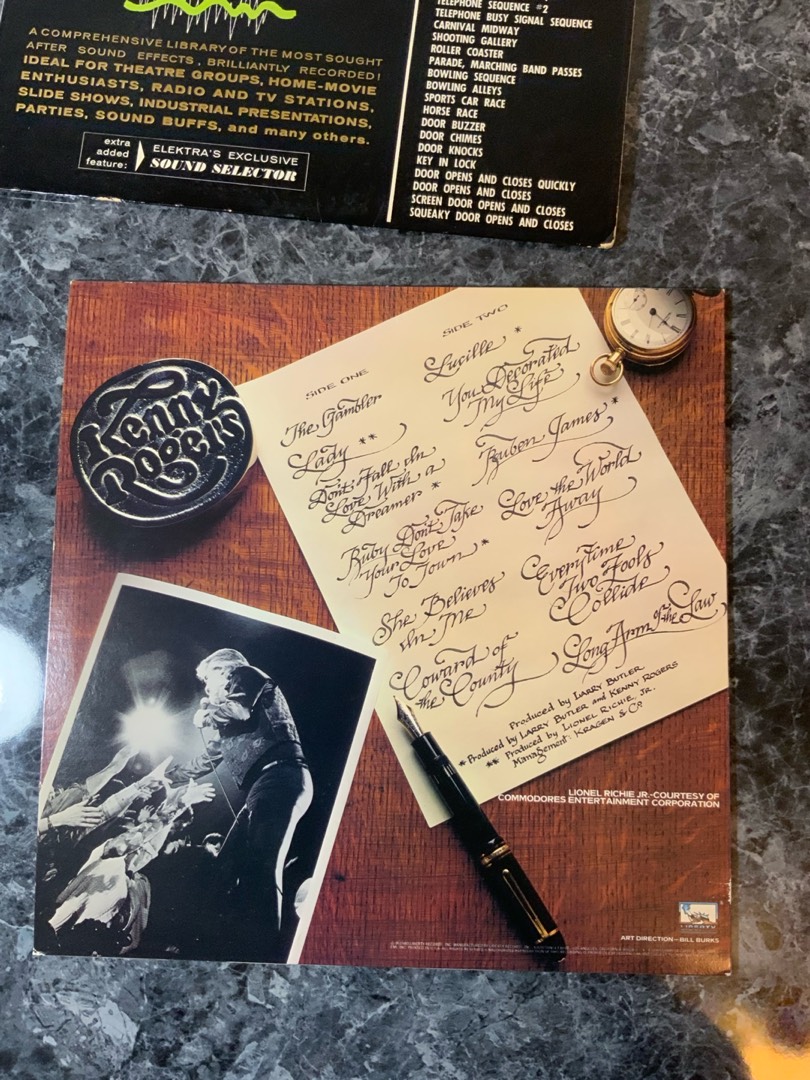 A COMPREHENSIVE LIBRARY OF THE MOST SOUGHT
AFTER SOUND EFFECTS, BRILLIANTLY RECORDED!
IDEAL FOR THEATRE GROUPS, HOME-MOVIE
ENTHUSIASTS, RADIO AND TV STATIONS,
SLIDE SHOWS, INDUSTRIAL PRESENTATIONS,
PARTIES, SOUND BUFFS, and many others.
extra
added
feature:
ELEKTRA'S EXCLUSIVE
SOUND SELECTOR
TELEPHONE SEQUENCE #2
TELEPHONE BUSY SIGNAL SEQUENCE
CARNIVAL MIDWAY
SHOOTING GALLERY
ROLLER COASTER
PARADE, MARCHING BAND PASSES
BOWLING SEQUENCE
BOWLING ALLEYS
SPORTS CAR RACE
HORSE RACE
DOOR BUZZER
DOOR CHIMES
DOOR KNOCKS
KEY IN LOCK
DOOR OPENS AND CLOSES QUICKLY
DOOR OPENS AND CLOSES
SCREEN DOOR OPENS AND CLOSES
SQUEAKY DOOR OPENS AND CLOSES
Kenny
Rogers
SIDE ONE
The Gambler
Lady **
Don't Fall In
Love With a
Dreamer *
Ruby Don't Take
Your Love
To Town *
She Believes
In Me
Coward of
the County
SIDE TWO
Lucille *
You Decorated
My Life
Ruben James *
Love the World
Away
Everytime
Two Fools
Collide
Long Arm of the Law
Produced by LARRY BUTLER
*Produced by LARRY BUTLER and KENNY ROGERS
** Produced by LIONEL RICHIE, JR.
Management: KRAGEN & CO.
LIONEL RICHIE JR.-COURTESY OF
COMMODORES ENTERTAINMENT CORPORATION
LIBERTY
ART DIRECTION–BILL BURKS